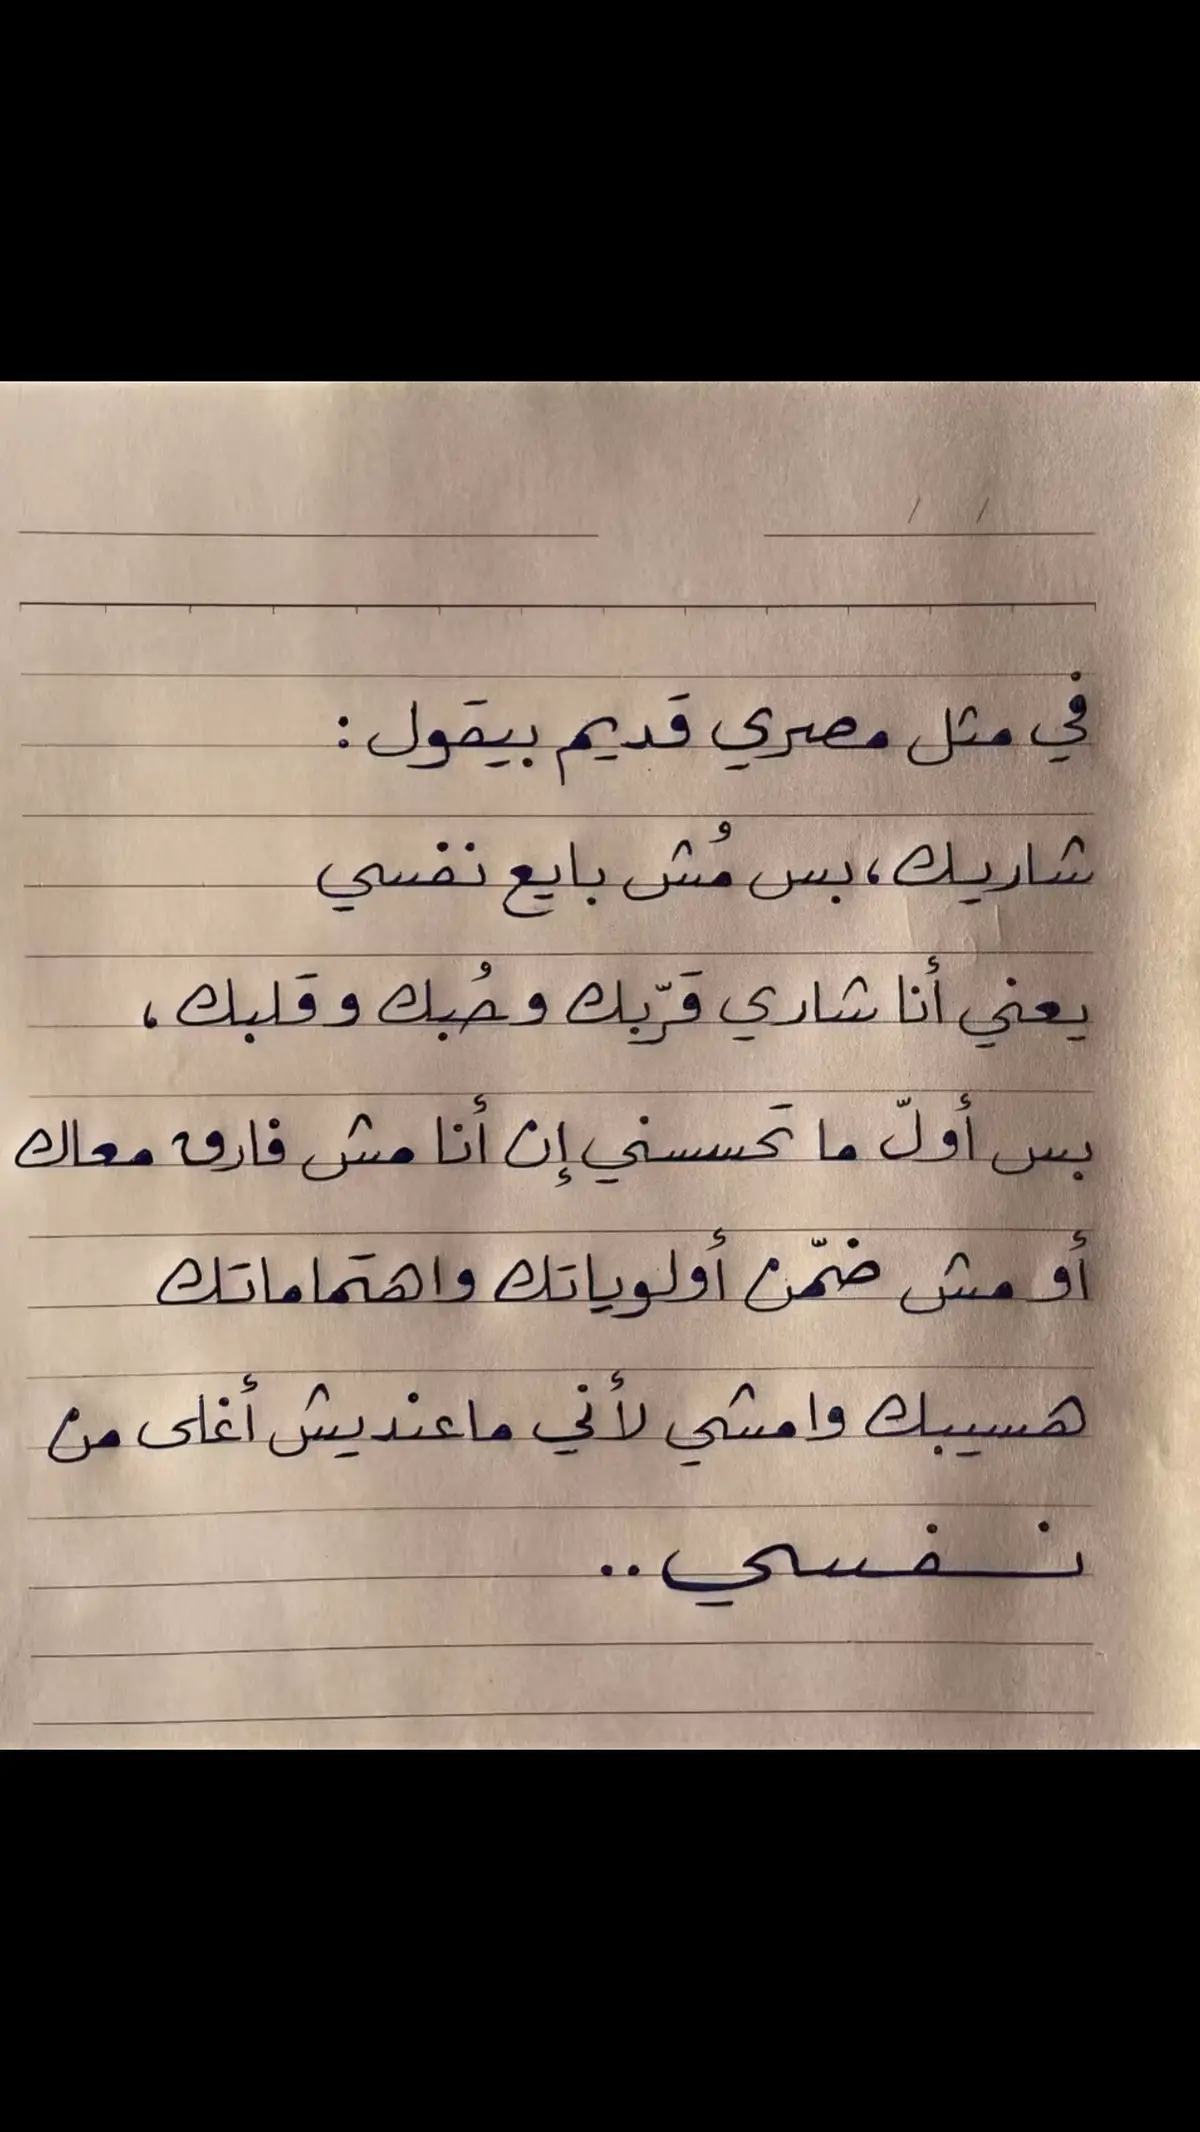 في مثل مصري قديم بيقول :
شاريك، بس مُش بايع نفسي
يعني أنا شاري قرّبك وحُبك وقلبك ،
بس أولّ ما تحسسني إن أنا مش فارق معاك
أو مش ضمّن أولوياتك واهتماماتك
هسيبك وامشي لأني ماعنديش أغلى من
نفسي ..